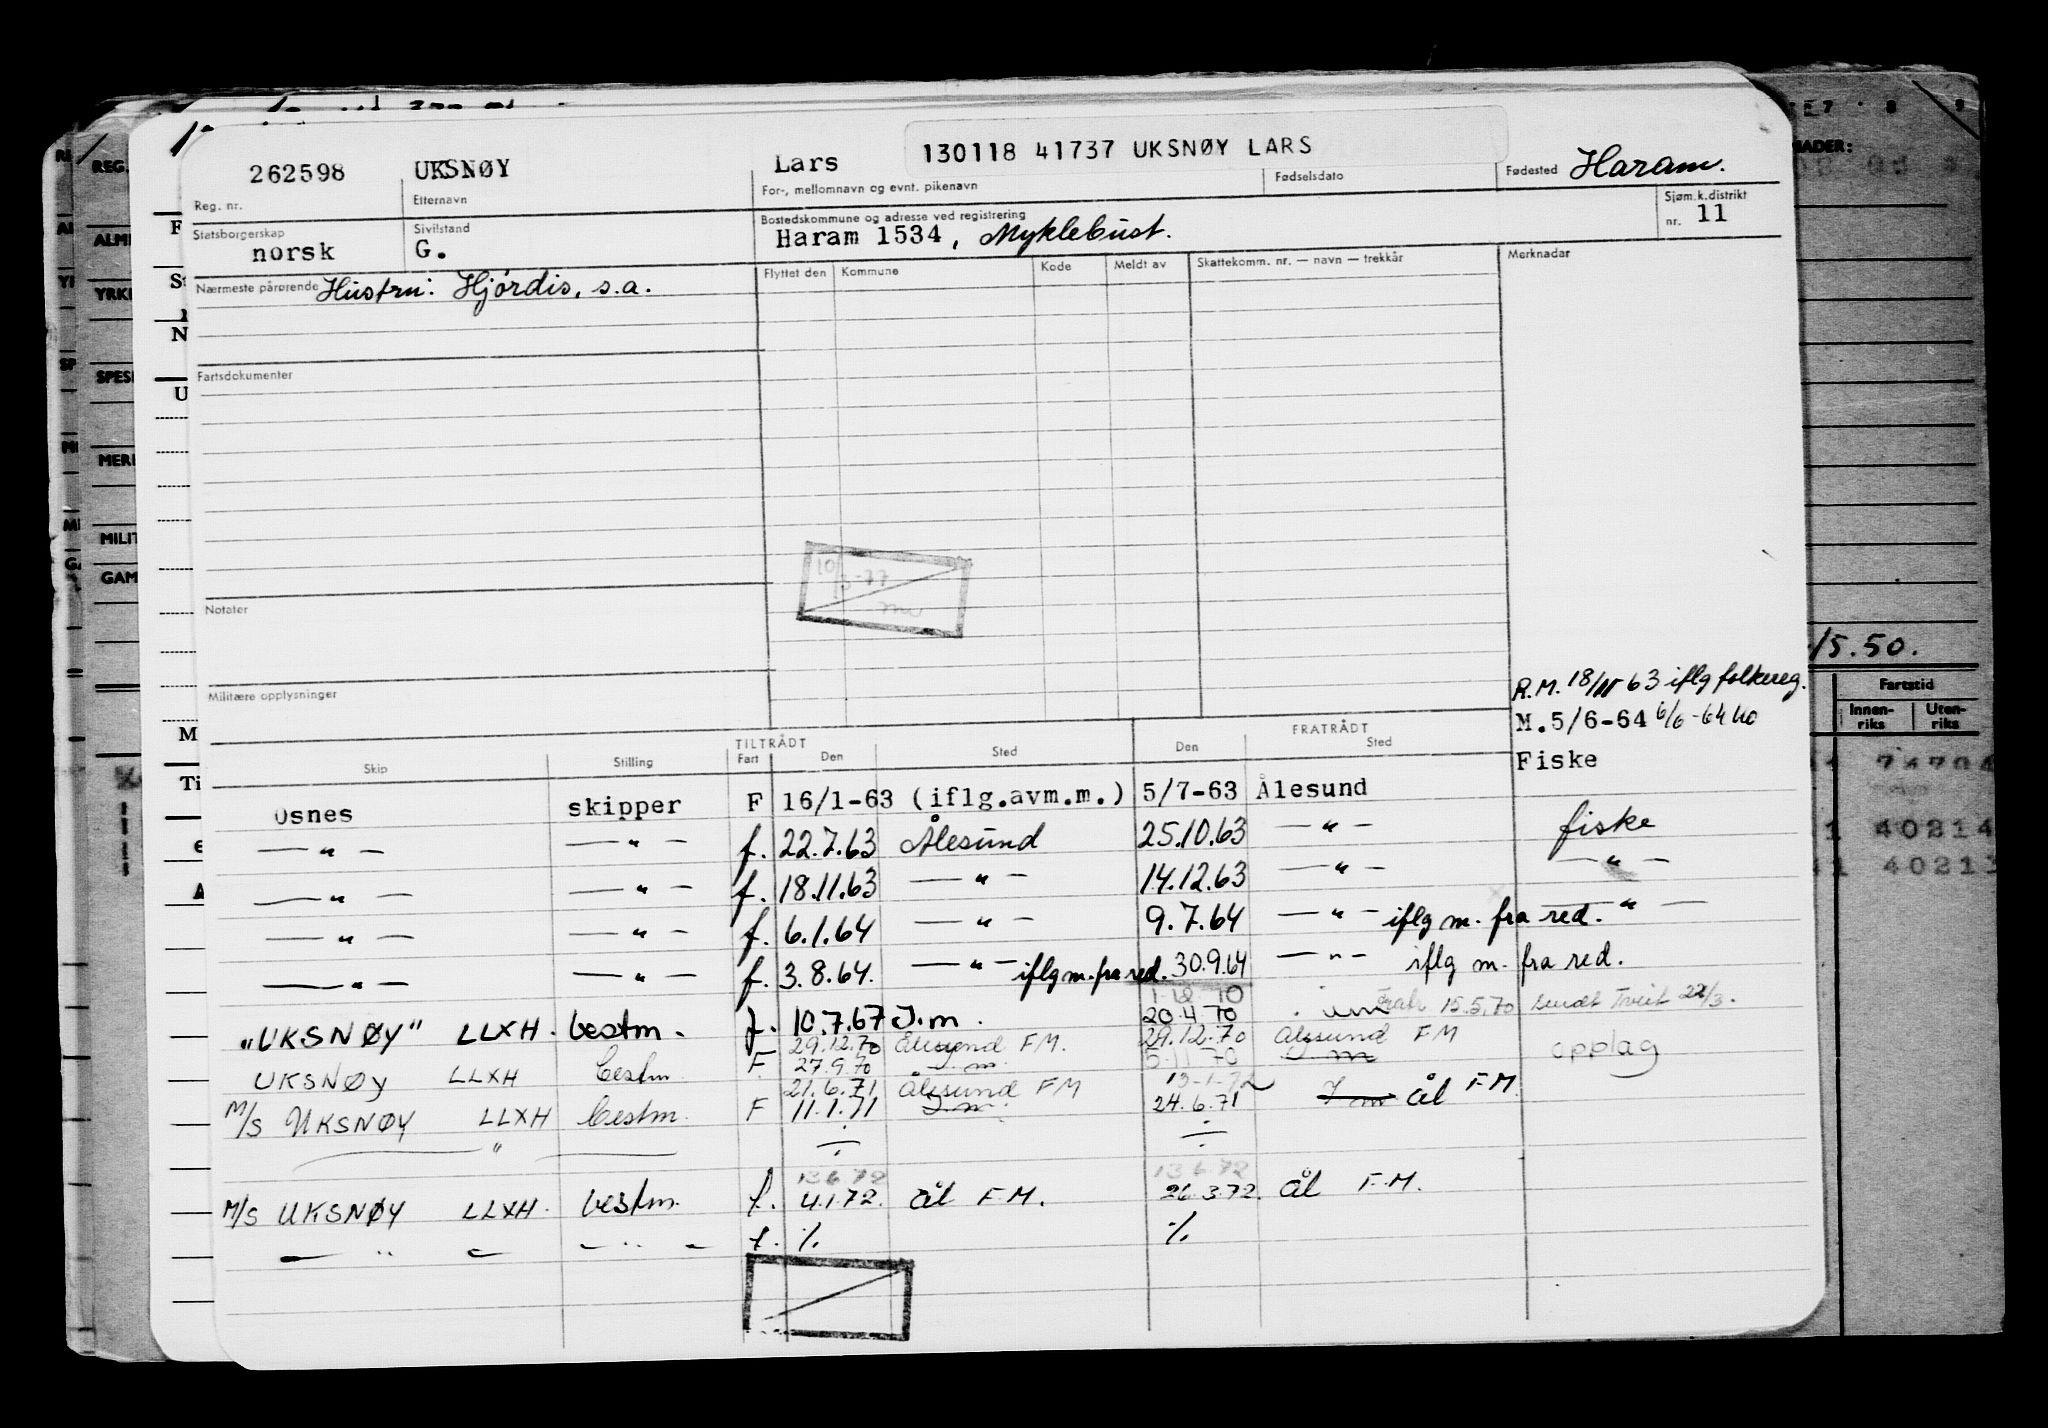 262598 UKSNØY Lars 130118 41737 UKSNØY LARS Haram.
Reg. nr. Etternavn For-, mellomnavn og evnt. pikenavn Fødselsdato Fødested
Statsborgerskap Sivilstand Bostedskommune og adresse ved registrering Sjøm.k.distrikt
norsk G. Haram 1534, Myklebust. nr. 11
Nærmeste pårørende Hustru: Hjórdis, s.a. Flyttet den Kommune Kode Meldt av Skattekomm. nr. — navn — trekkår Merknader
Fartsdokumenter
10/3-77
Notater
Militære opplysninger
R.M. 18/11 63 iflg folkereg.
M.5/6-64 6/6-64
Fiske
TILTRÅDT FRATRÅDT
Skip Stilling Fart Den Sted Den Sted
Osnes skipper F 16/1-63 (iflg.avm.m.) 5/7-63 Ålesund
— " — — " — f. 22.7.63 Ålesund 25.10.63 — " — fiske
— " — — " — f. 18.11.63 — " — 14.12.63 — " — — " —
— " — — " — f. 6.1.64 — " — 9.7.64 — " — iflg m. fra red. — " —
— " — — " — f. 3.8.64. — " — iflg m. fra red. 30.9.64 — " — iflg m. fra red.
1 12 70
"UKSNØY" LLXH. bestm. f. 10.7.67 I.m. 20.4.70 15.5.70 sendt 22/3.
29.12.70 Ålesund FM. 29.12.70 Ålesund FM
UKSNØY LLXH bestm. F 27.9.70 I.m. 5 11 70 I m opplag
21.6.71 Ålesund FM 13-1-72
M/S UKSNØY LLXH bestm. F 11.1.71 I.m. 24.6.71 I m ål F.M.
" ÷ ÷
13 6 72 13 6 72
M/S UKSNØY LLXH. bestm. f. 4.1.72. ål F.M. 26.3.72. ål F.M.
— " — — " — f. ./. ./.
REG.
ALM
YRK
SPES
MER
MILIT
GAM
7 8 9
ADER:
/5.50.
Fartstid
Innen-riks Uten-riks
40214
40213